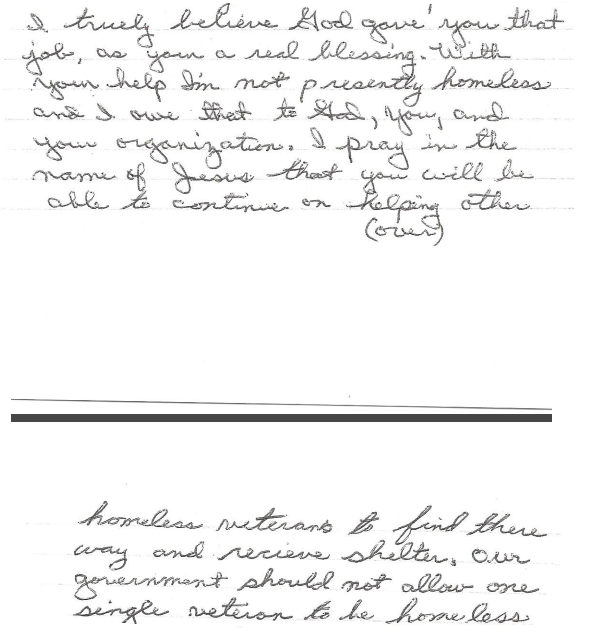 I truely believe God gave' you that
job, as your a real blessing. With
your help I'm not presently homeless
and I owe that to God, you, and
your organization. I pray in the
name of Jesus that you will be
able to continue on helping other
(over)
homeless veterans to find there
way and recieve shelter. Our
government should not allow one
single veteron to be homeless